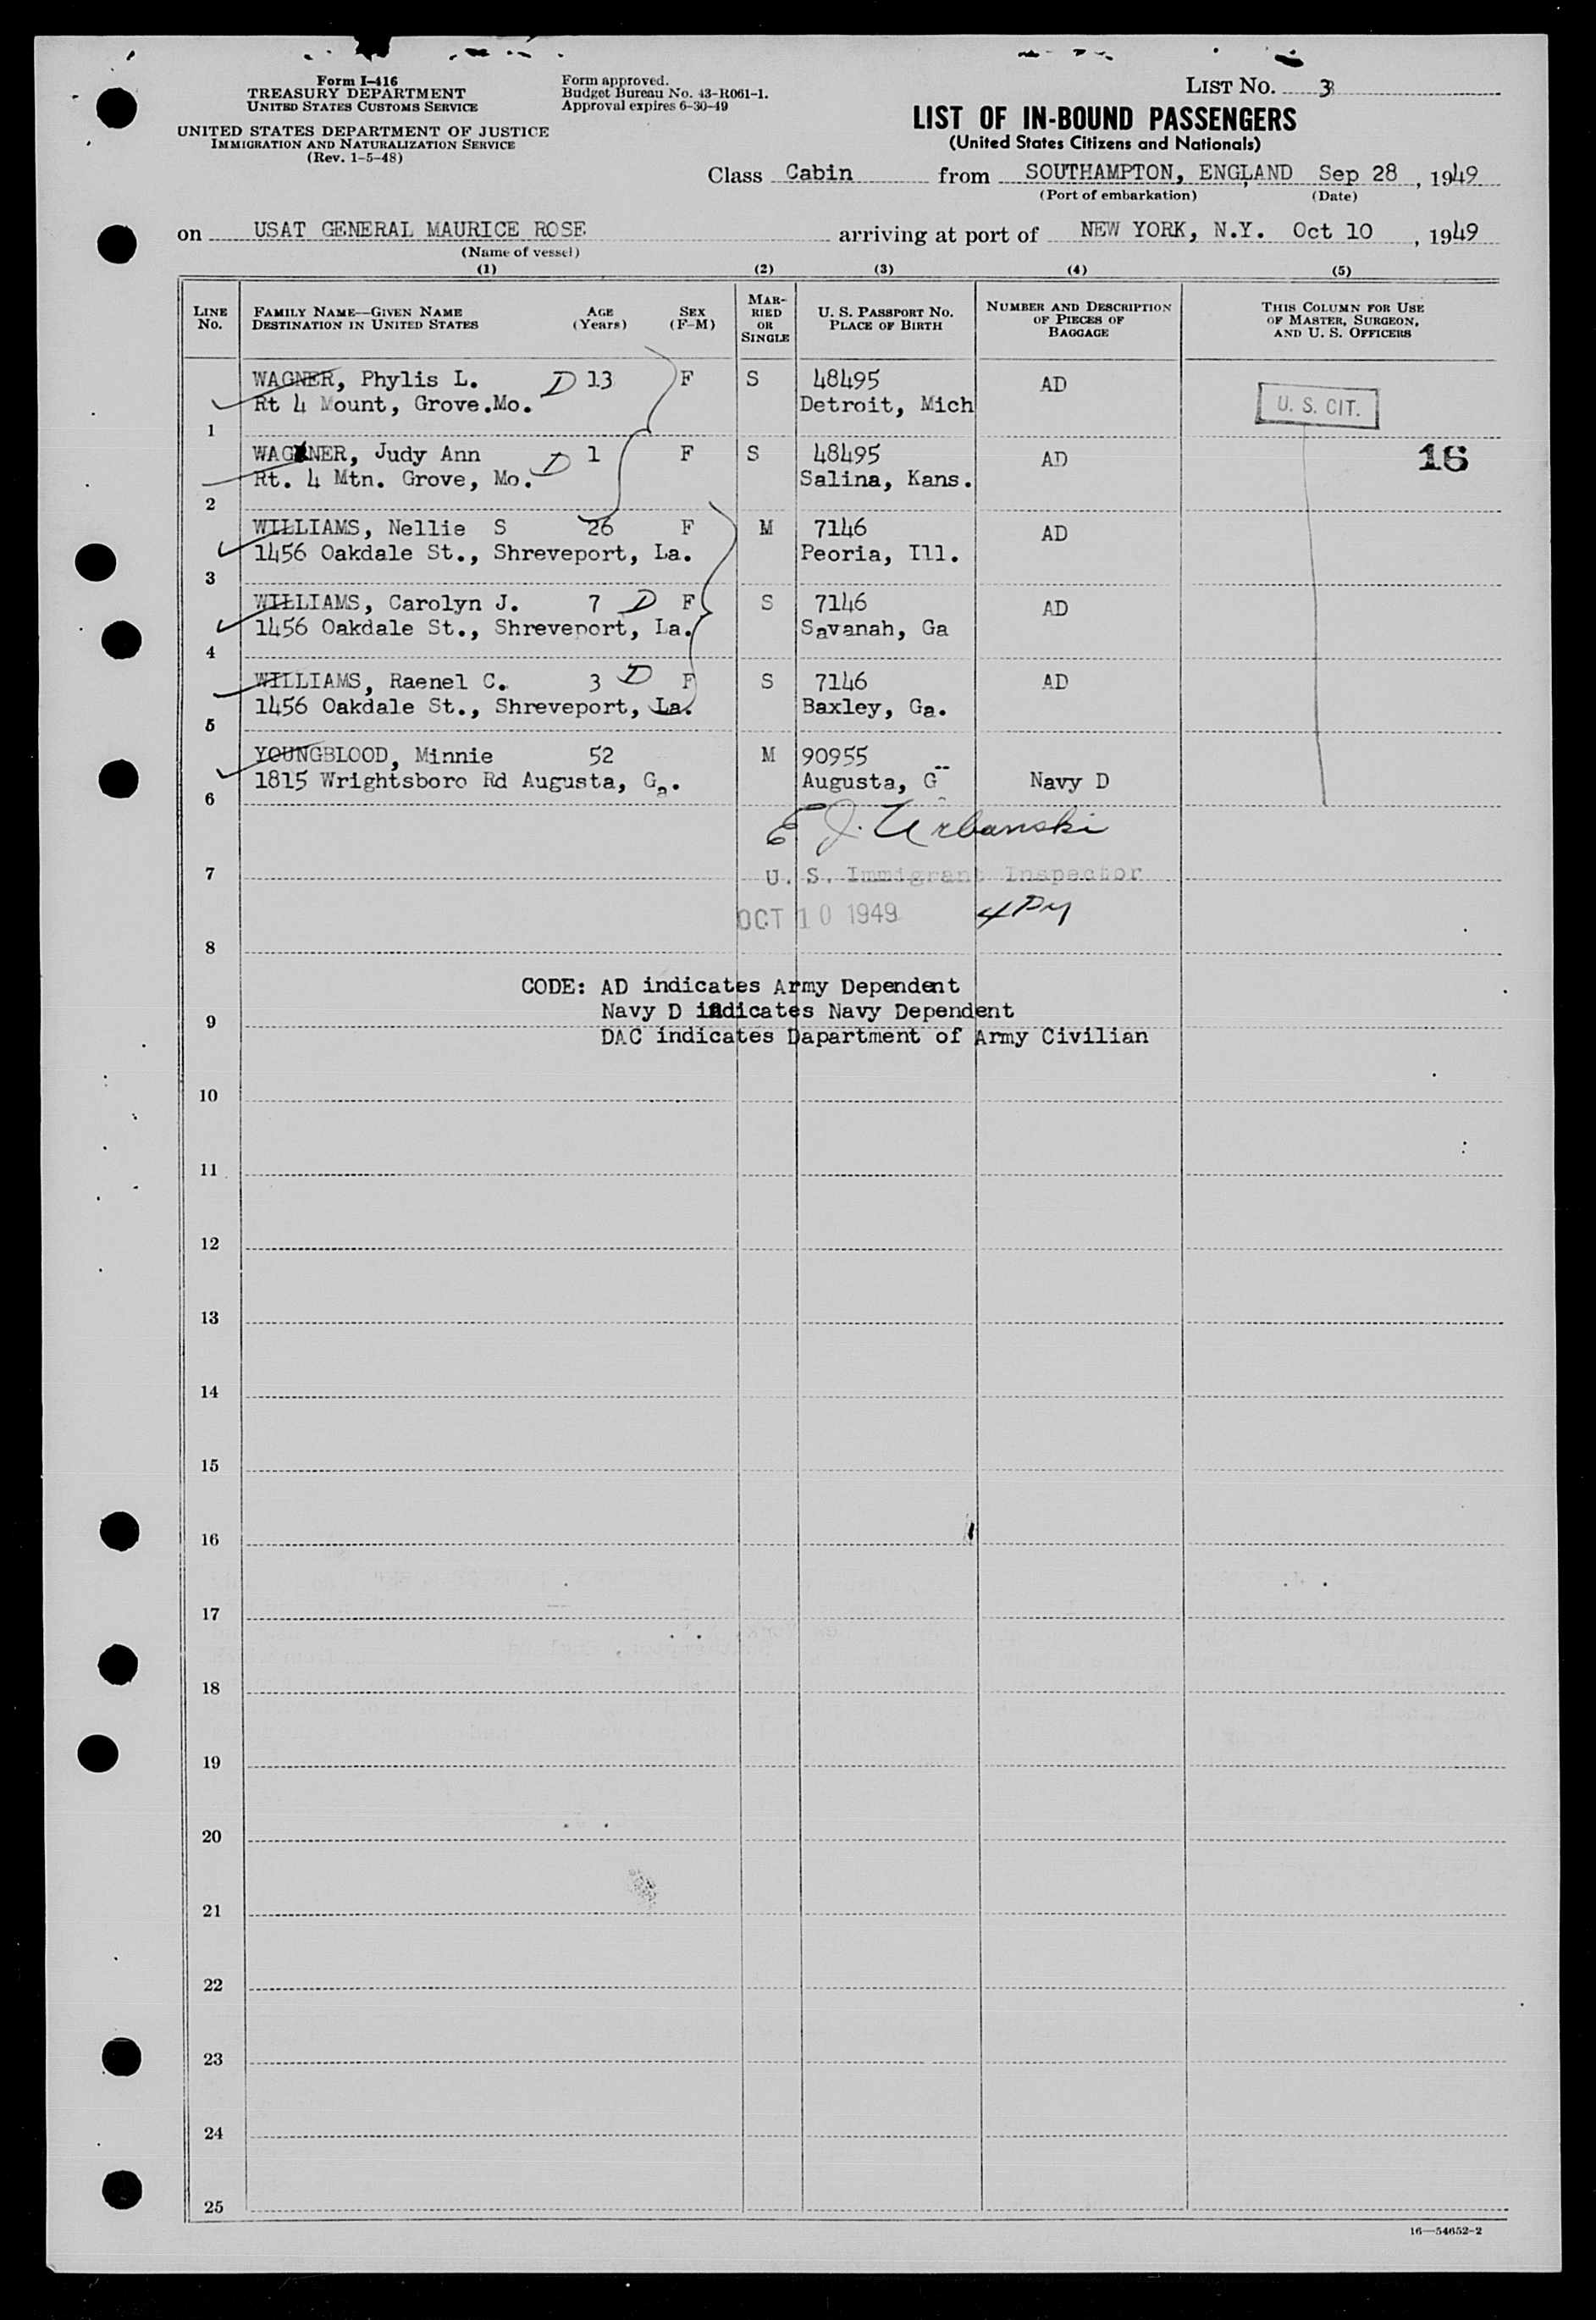 Form I-416
TREASURY DEPARTMENT
UNITED STATES CUSTOMS SERVICE
UNITED STATES DEPARTMENT OF JUSTICE
IMMIGRATION AND NATURALIZATION SERVICE
(Rev. 1-5-48)
Form approved.
Budget Bureau No. 43-R061-1.
Approval expires 6-30-49
LIST NO. 3
LIST OF IN-BOUND PASSENGERS
(United States Citizens and Nationals)
Class Cabin from SOUTHAMPTON, ENGLAND Sep 28, 1949
(Port of embarkation) (Date)
on USAT GENERAL MAURICE ROSE arriving at port of NEW YORK, N.Y. Oct 10, 1949
(Name of vessel)
(1) (2) (3) (4) (5)
LINE NO. FAMILY NAME—GIVEN NAME DESTINATION IN UNITED STATES AGE (Years) SEX (F-M) MARRIED OR SINGLE U. S. PASSPORT NO. PLACE OF BIRTH NUMBER AND DESCRIPTION OF PIECES OF BAGGAGE THIS COLUMN FOR USE OF MASTER, SURGEON, AND U. S. OFFICERS
WAGNER, Phylis L. D 13 F S 48495 AD
Rt 4 Mount, Grove.Mo. Detroit, Mich U. S. CIT.
1
WAGNER, Judy Ann D 1 F S 48495 AD 16
Rt. 4 Mtn. Grove, Mo. Salina, Kans.
2
WILLIAMS, Nellie S 26 F M 7146 AD
1456 Oakdale St., Shreveport, La. Peoria, Ill.
3
WILLIAMS, Carolyn J. 7 D F S 7146 AD
1456 Oakdale St., Shreveport, La. Savanah, Ga
4
WILLIAMS, Raenel C. 3 D F S 7146 AD
1456 Oakdale St., Shreveport, La. Baxley, Ga.
5
YOUNGBLOOD, Minnie 52 M 90955
1815 Wrightsboro Rd Augusta, Ga. Augusta, G Navy D
6
E. J. Urbanski
7 U. S. Immigrant Inspector
OCT 10 1949
8
CODE: AD indicates Army Dependent
Navy D indicates Navy Dependent
9
DAC indicates Dapartment of Army Civilian
10
11
12
13
14
15
16
17
18
19
20
21
22
23
24
25
16—54652-2